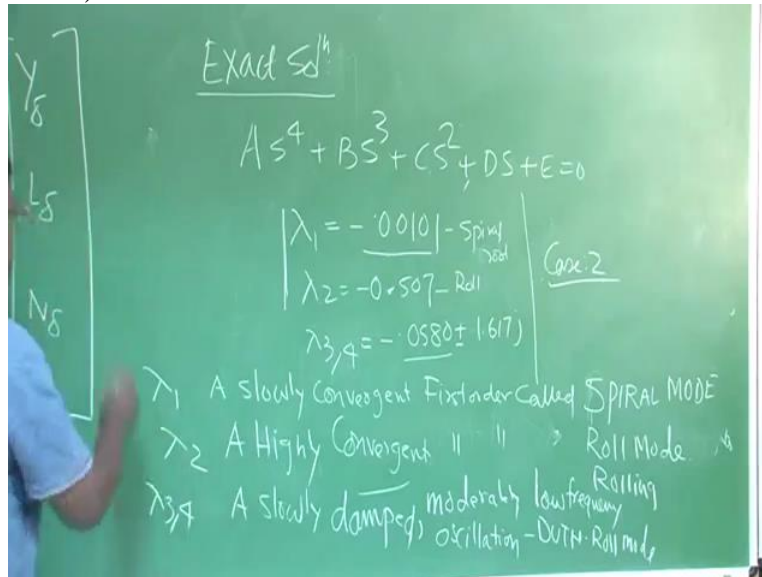 Y δ
L δ
N δ
Exact Solⁿ
AS⁴ + BS³ + CS² + DS + E = 0
λ₁ = - .00101 - Spiral root
λ₂ = -0.507 - Roll
λ₃,₄ = - .0580 ± 1.617j
Case: 2
λ₁ A slowly Convergent First order Called SPIRAL MODE
λ₂ A Highly Convergent " " " Roll Mode
Rolling
λ₃,₄ A slowly damped, moderately low frequency
oscillation - DUTCH Roll mode